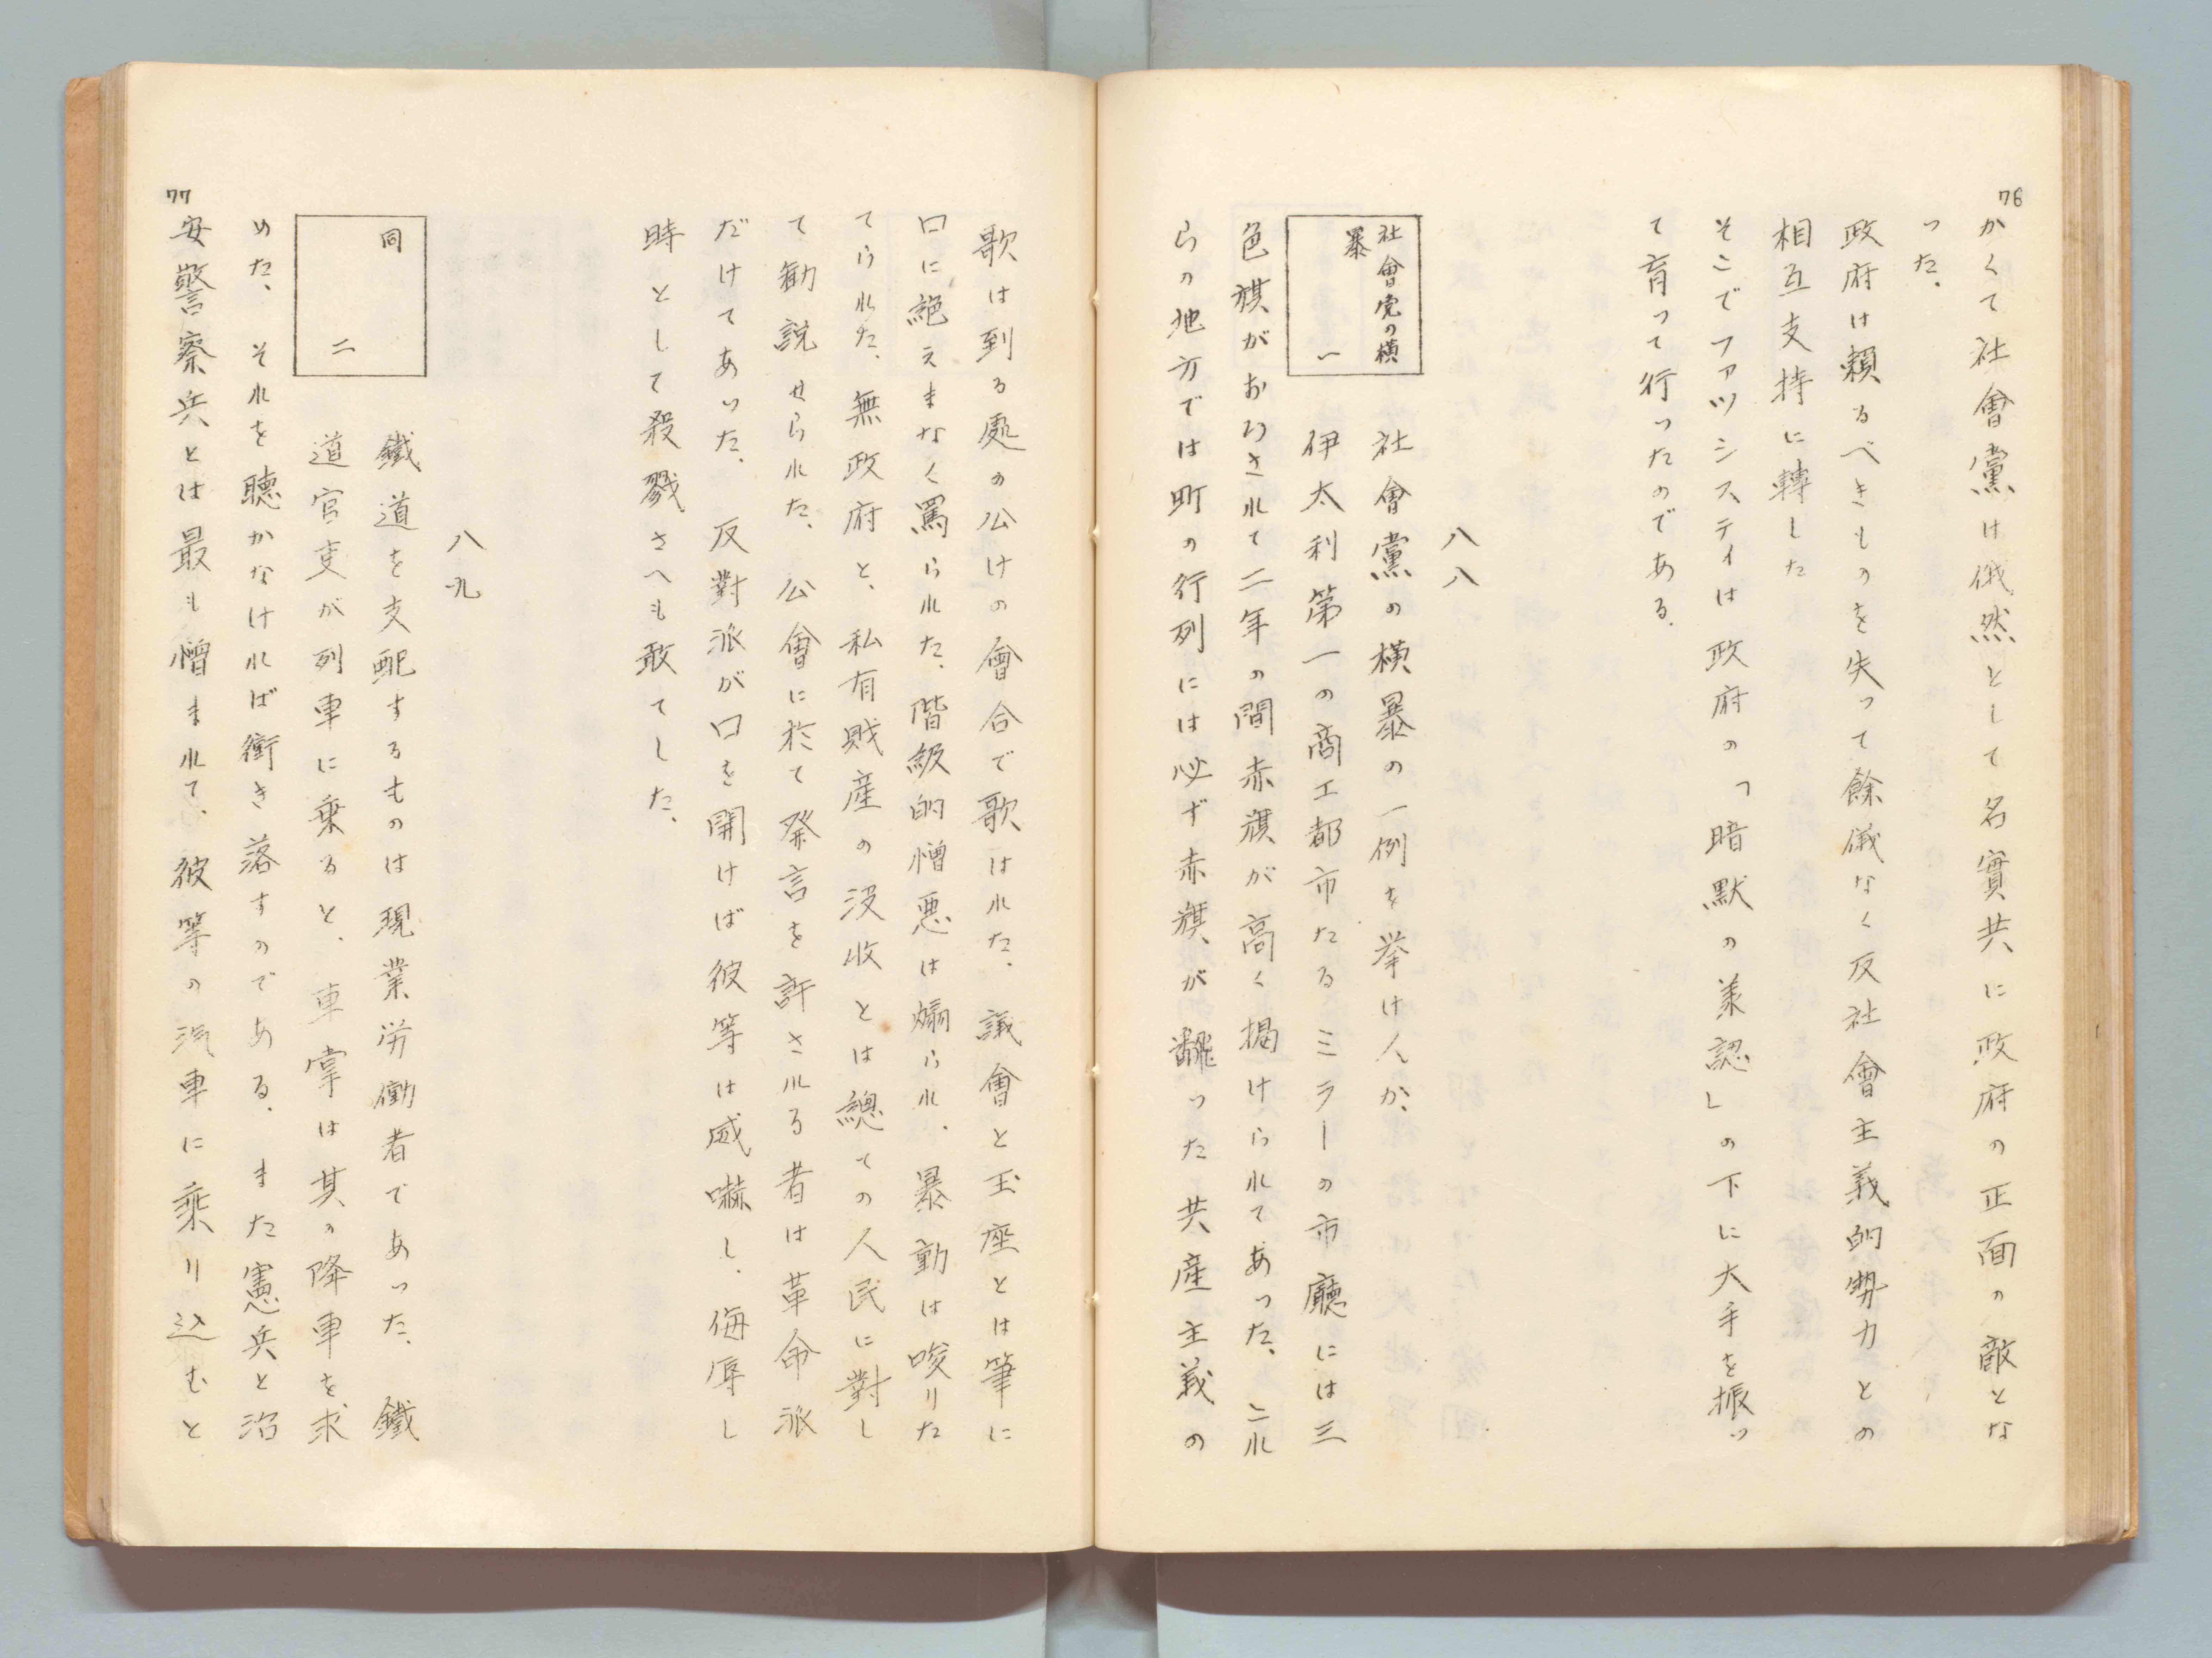 76
かくて社會黨は俄然として名實共に政府の正面の敵とな
った、
政府は頼るべきものを失って餘儀なく反社會主義的勢力との
相互支持に轉した
そこでファツシスティは政府の「暗默の承認」の下に大手を振っ
て育って行ったのである、
八八
社會党の横
暴 一
社會黨の横暴の一例を挙け人か、
伊太利第一の商工都市たるミラーの市廳には三
色旗がおろされて二年の間赤旗が高く掲けられてあった、これ
らの地方では町の行列には必ず赤旗が飜った共産主義の
歌は到る處の公けの會合で歌はれた、議會と玉座とは筆に
口に絶えまなく罵られた、階級的憎悪は煽られ、暴動は唆りた
てられた、無政府と、私有財産の没收とは總ての人民に對し
て勧説せられた、公會に於て発言を許される者は革命派
だけてあった、反對派が口を開けば彼等は威嚇し、侮辱し
時として殺戮さへも敢てした、
八九
同
二
鐵道を支配するものは現業労働者であった、鐵
道官吏が列車に乗ると、車掌は其の降車を求
めた、それを聴かなければ衝き落すのである、また憲兵と治
安警察兵とは最も憎まれて、彼等の汽車に乗り込むと
77